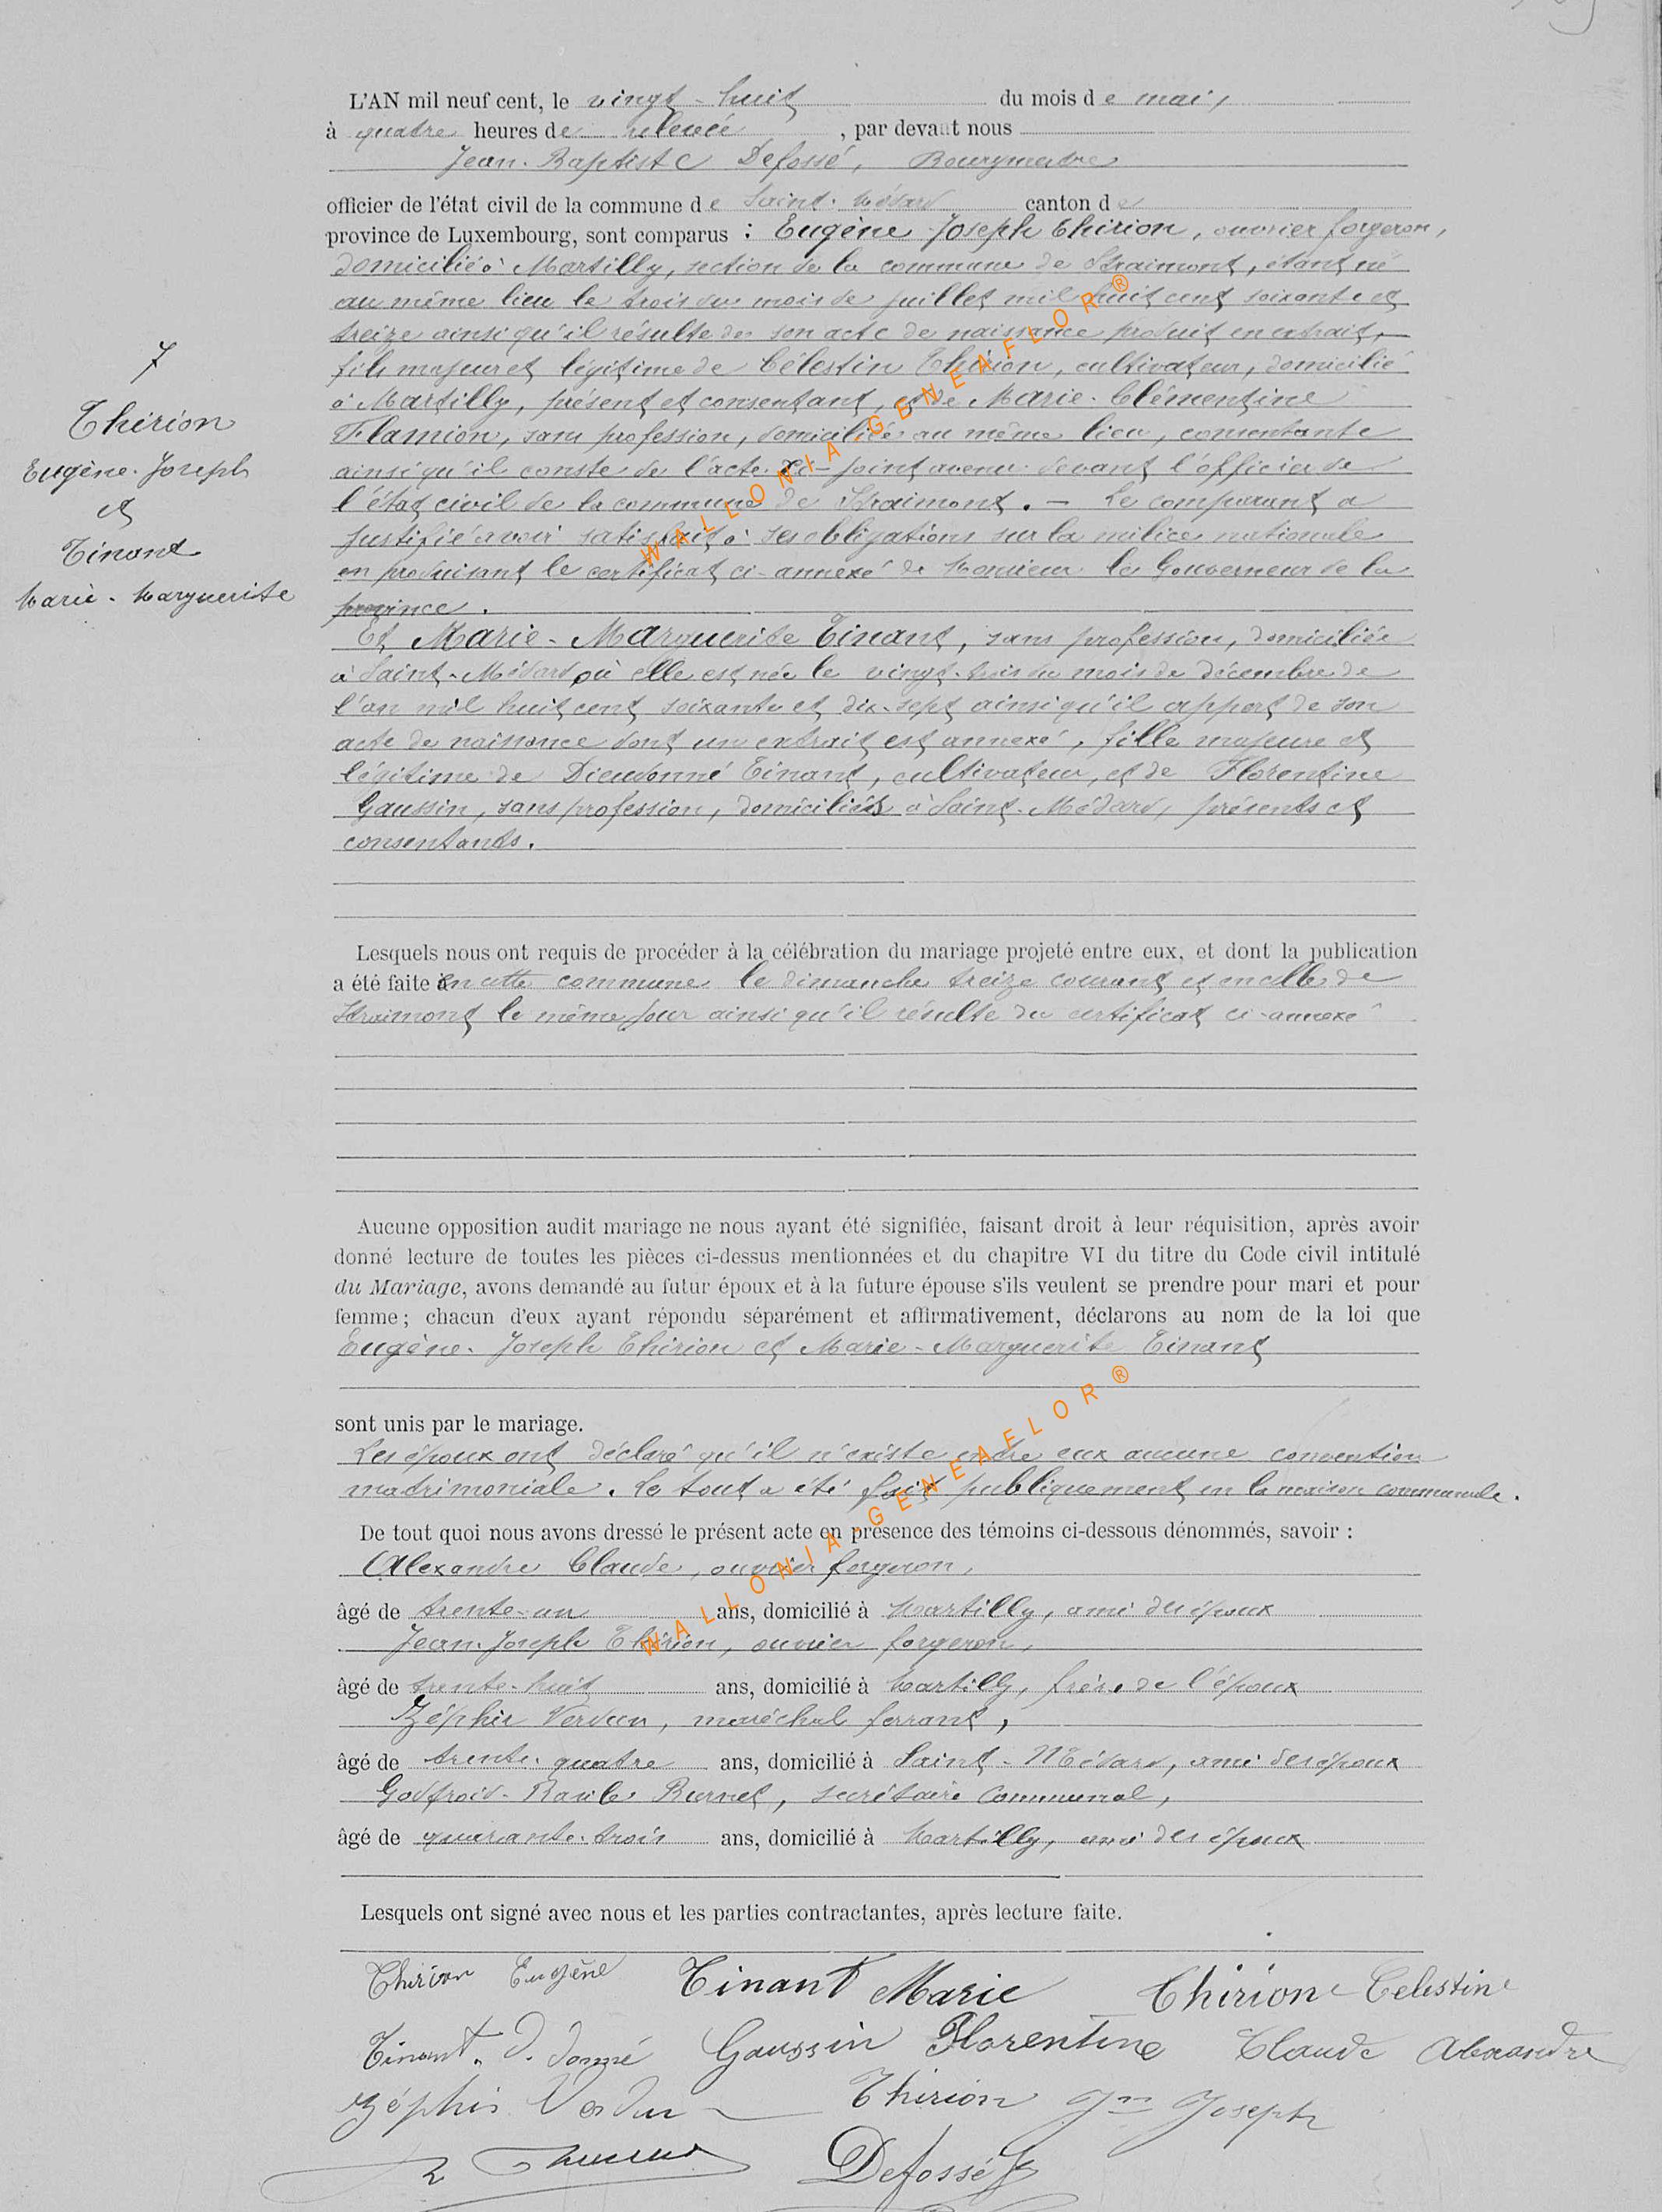 L'AN mil neuf cent, le vingt-huit du mois de mai,
à quatre heures de relevée, par devant nous
Jean-Baptiste Defossé, Bourgmestre
officier de l'état civil de la commune de Saint-Médard canton de
province de Luxembourg, sont comparus : Eugène Joseph Thirion, ouvrier forgeron,
domicilié à Martilly, section de la commune de Straimont, étant né
au même lieu le trois du mois de juillet mil huit cent soixante et
treize ainsi qu'il résulte de son acte de naissance produit en extrait,
fils majeur et légitime de Célestin Thirion, cultivateur, domicilié
à Martilly, présent et consentant, et de Marie-Clémentine
Flamion, sans profession, domiciliée au même lieu, consentante
ainsi qu'il conste de l'acte ci-joint avenu devant l'officier de
l'état civil de la commune de Straimont. — Le comparant a
justifié avoir satisfait à ses obligations sur la milice nationale
en produisant le certificat ci-annexé de Monsieur le Gouverneur de la
province.
7
Thirion
Eugène-Joseph
et
Tinant
Marie-Marguerite
Et Marie-Marguerite Tinant, sans profession, domiciliée
à Saint-Médard où elle est née le vingt-trois du mois de décembre de
l'an mil huit cent soixante et dix-sept ainsi qu'il appert de son
acte de naissance dont un extrait est annexé, fille majeure et
légitime de Dieudonné Tinant, cultivateur, et de Florentine
Gaussin, sans profession, domiciliés à Saint-Médard, présents et
consentants.
Lesquels nous ont requis de procéder à la célébration du mariage projeté entre eux, et dont la publication
a été faite en cette commune le dimanche treize courant et en celle de
Straimont le même jour ainsi qu'il résulte du certificat ci-annexé
Aucune opposition audit mariage ne nous ayant été signifiée, faisant droit à leur réquisition, après avoir
donné lecture de toutes les pièces ci-dessus mentionnées et du chapitre VI du titre du Code civil intitulé
du Mariage, avons demandé au futur époux et à la future épouse s'ils veulent se prendre pour mari et pour
femme; chacun d'eux ayant répondu séparément et affirmativement, déclarons au nom de la loi que
Eugène-Joseph Thirion et Marie-Marguerite Tinant
sont unis par le mariage.
Les époux ont déclaré qu'il n'existe entre eux aucune convention
matrimoniale. Le tout a été fait publiquement en la maison communale.
De tout quoi nous avons dressé le présent acte en présence des témoins ci-dessous dénommés, savoir :
Alexandre Claude, ouvrier forgeron,
âgé de trente-un ans, domicilié à Martilly, ami des époux
Jean-Joseph Thirion, ouvrier forgeron,
âgé de trente-huit ans, domicilié à Martilly, frère de l'époux
Zéphir Verdun, maréchal ferrant,
âgé de trente-quatre ans, domicilié à Saint-Médard, ami des époux
Godfroid- secrétaire communal,
âgé de quarante-trois ans, domicilié à Martilly, ami des époux
Lesquels ont signé avec nous et les parties contractantes, après lecture faite.
Thirion Eugène Tinant Marie Thirion Celestin
Tinant. D. donné Gaussin Florentine Claude Alexandre
Zéphir Verdun Thirion Jn Joseph
Defossé
WALLONIA-GENEAFLOR®
WALLONIA-GENEAFLOR®